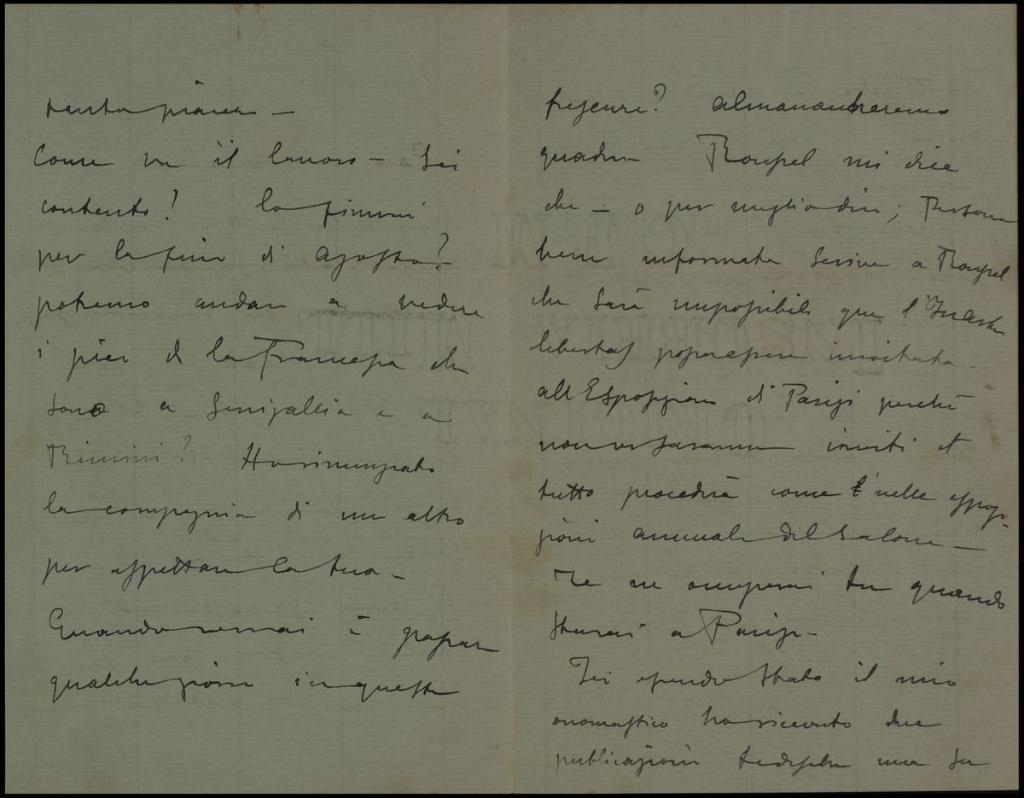 tanto piacere –
Come va il lavoro – Sei
contento? lo finirai
per la fine di Agosto? –
potremo andare a vedere
i pier de la Francesca che
sono a Senigallia e a
Rimini? Ho rinunziato
la compagnia di un altro
per aspettare la tua –
Quando verrai a passare
qualche giorno in queste
almanaccheremo
quadri Roussel mi dice
che – o per meglio dire; Persona
bene informata scrive a Roussel
che sarà impossibile que l'In Arte
libertas possa essere invitata
all Esposizione di Parigi perchè
non vi saranno inviti et
tutto procederà come è nelle esposi-
zioni annuale del Salone –
Te ne occuperai tu quando
starai a Parigi –
Jei essendo stato il mio
onomastico ho ricevuto due
publicazioni tedesche una su